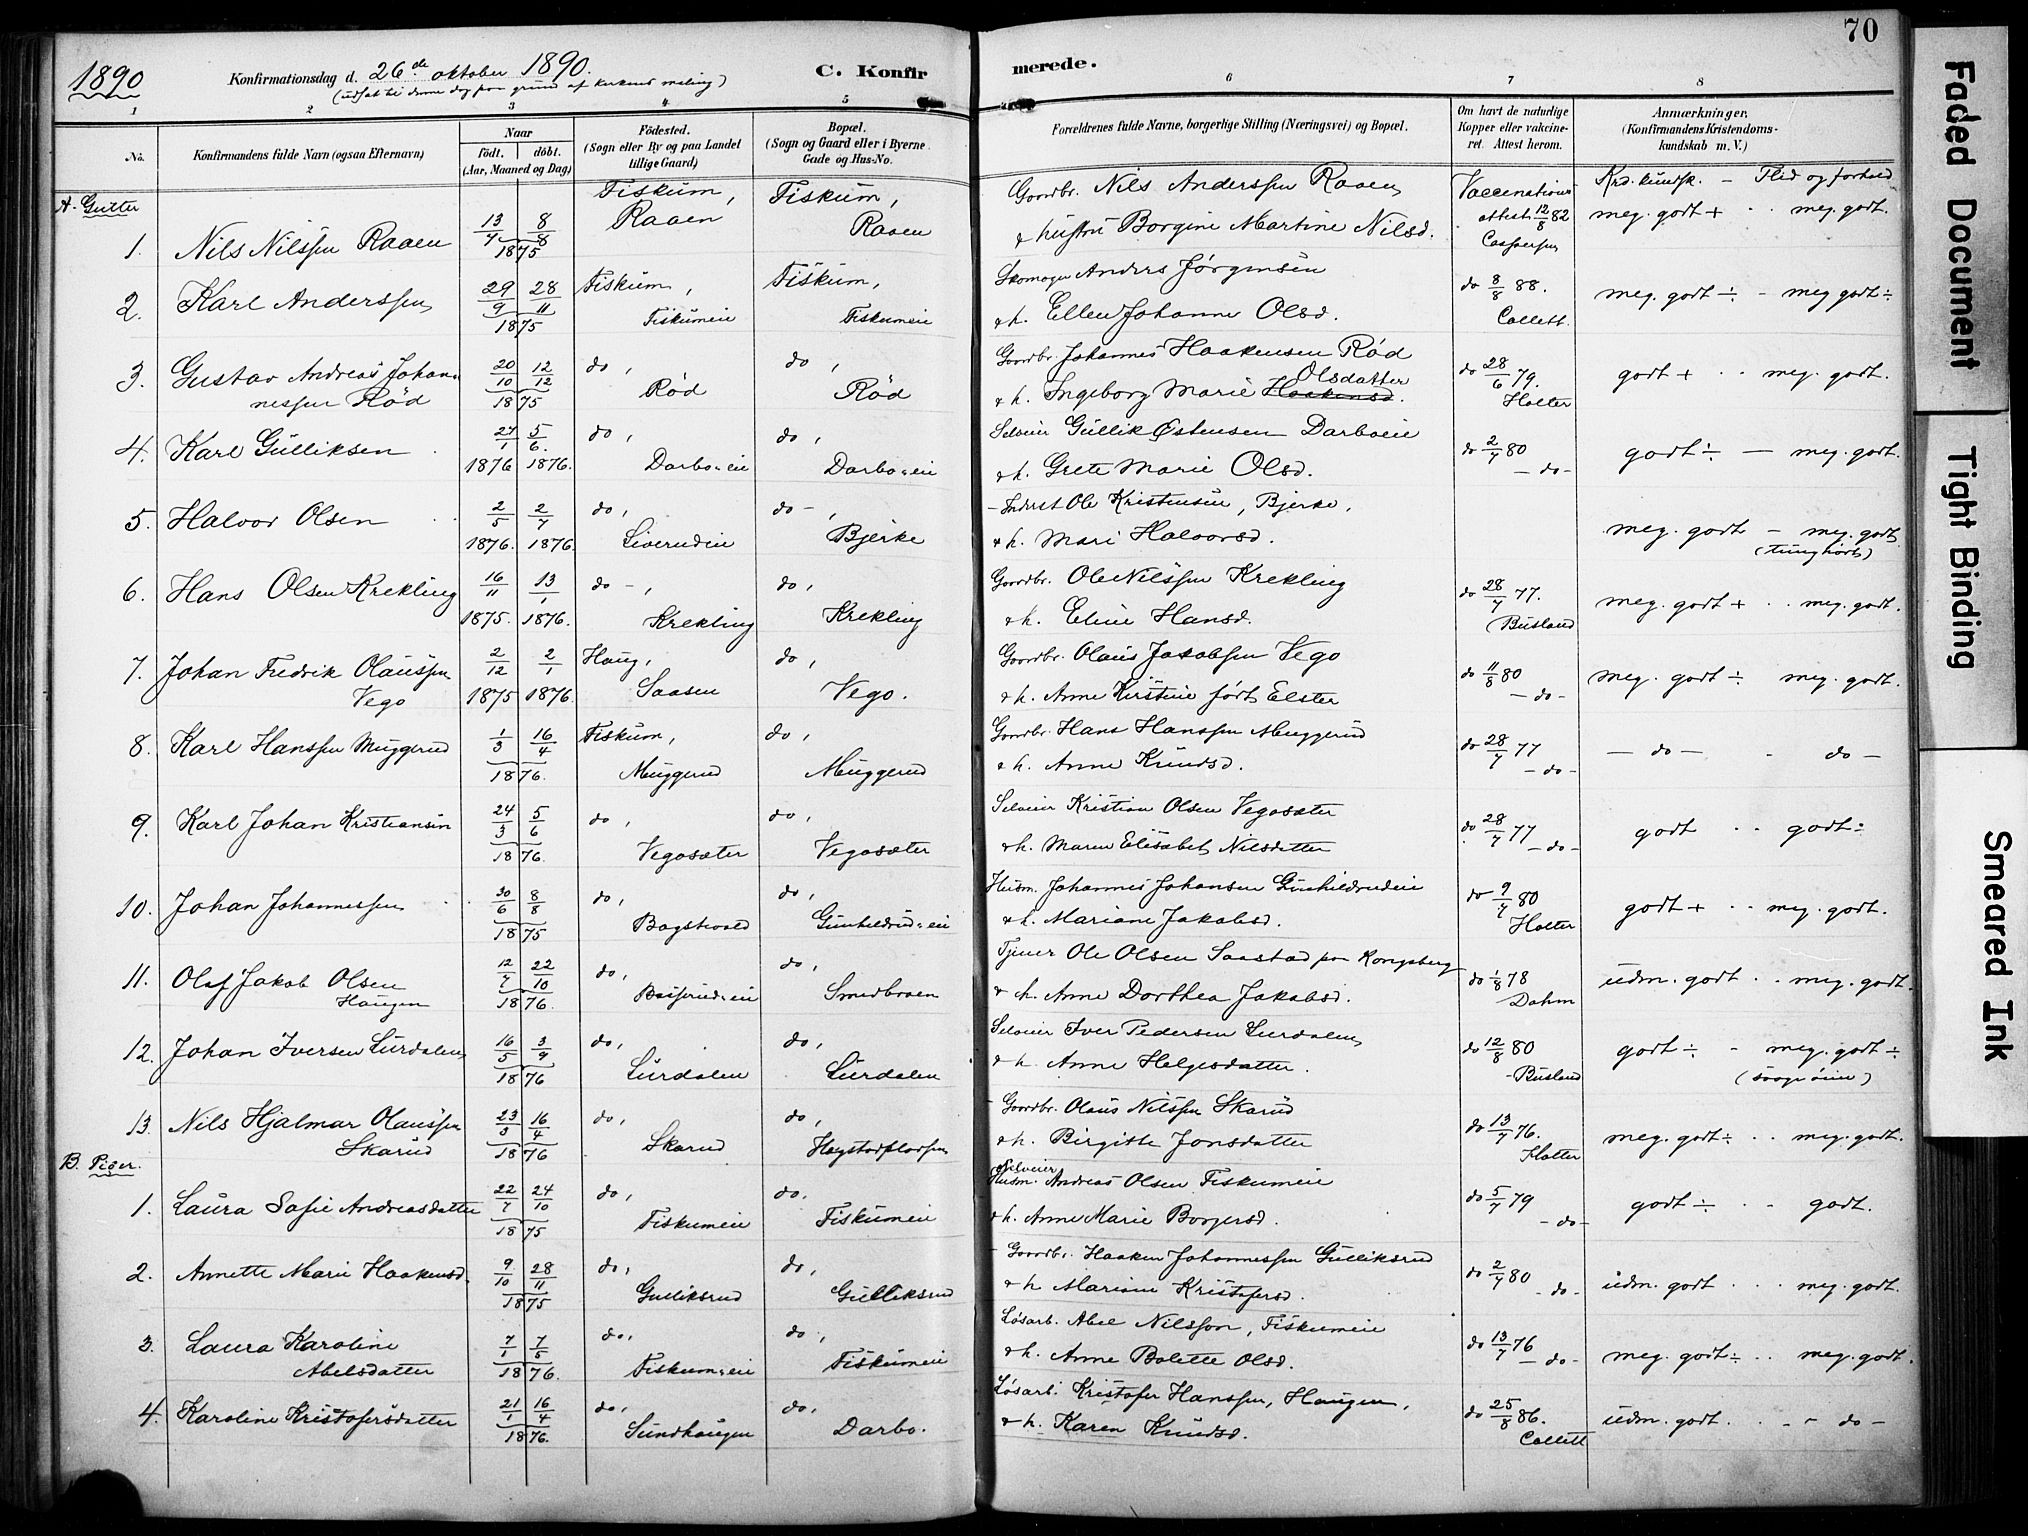 70
1890
Konfirmationsdag d. 26de oktober 1890.
C. Konfirmerede.
(udsat til denne dag paa grund af kirkens maling)
1 2 3 4 5 6 7 8
No. Konfirmandens fulde Navn (ogsaa Efternavn) Naar født. døbt. (Aar, Maaned og Dag) Fødested. (Sogn eller By og paa Landet tillige Gaard) Bopæl. (Sogn og Gaard eller i Byerne Gade og Hus-No. Forældrenes fulde Navne, borgerlige Stilling (Næringsvei) og Bopæl. Om havt de naturlige Kopper eller vakcineret. Attest herom. Anmærkninger. (Konfirmandens Kristendomskundskab m. V.)
Krd. kundsk. - Flid og forhold
A. Gutter
1. Nils Nilssen Raaen 13/7 8/8 1875 Fiskum, Raaen Fiskum, Raaen Gaardbr. Nils Anderssen Raaen
& hustru Borgine Martine Nilsd. Vaccenations attest 12/8 82 Caspersen meg. godt + - - meg. godt.
2. Karl Anderssen 29/9 28/11 1875 Fiskum, Fiskumeie Fiskum, Fiskumeie Skomager Anders Jørgensen
& h. Ellen Johanne Olsd. do 8/8 88. Collett. meg. godt ÷ - meg godt ÷
3. Gustav Andreas Johannessen Rød 20/10 12/12 1875 do, Rød do, Rød Gaardbr. Johannes Haakensen Rød
& h. Ingeborg Marie Haakensd. Olsdatter do 28/6 79. Holter godt + - - meg. godt.
4. Karl Gulliksen 27/1 1876 5/6. 1876. do, Darbo=eie do, Darbo=eie Selveier Gullik Østensen Darboeie
& h. Grete Marie Olsd. do 2/7 80 - do - godt ÷ - meg. godt.
5. Halvor Olsen 2/5 1876. 2/7 1876. do, do -, Bjerke - Inderst Ole Kristensen, Bjerke,
& h. Mari Halvorsd. meg. godt - meg. godt (tunghørt)
6. Hans Olsen Krekling 16/11 1875. 13/1 1876. do -, Krekling do, Krekling Gaardbr. Ole Nilssen Krekling
& h. Eline Hansd. do 28/7 77. Busland meg. godt + - - meg. godt.
7. Johan Fredrik Olaussen Vego 2/12 1875 2/1 1876. Haug, Saasen do, Vego. Gaardbr. Olaus Jakobsen Vego
& h. Anne Kirstine født Elster do 11/8 80 - do - meg. godt ÷ meg. godt.
8. Karl Hanssen Muggerud 1/3 16/4 1876. Fiskum, Muggerud do, Muggerud Gaardbr. Hans Hanssen Muggerud
& h. Anne Knudsd. do 28/7 77 - do - - do - - do -
9. Karl Johan Kristiansen 24/3 5/6 1876. do, Vegosæter do, Vegosæter Selveier Kristian Olsen Vegosæter
& h. Maren Elisabet Nilsdatter do 28/7 77 - do - godt - - godt ÷
10. Johan Johannessen 30/6 8/8 1875 do, Bagstevold do, Gunhildrud=eie Husm. Johannes Johansen Gunhildrudeie
& h. Mariane Jakobsd. do 9/7 80 Holter godt + - - meg. godt.
11. Olaf Jakob Olsen Haugen 12/7 22/10 1876. do, do, Smedbraaten Tjener Ole Olsen Saastad paa Kongsberg
& h. Anne Dorthea Jakobsd. do 1/8 78 Dahm udm. godt - - meg. godt.
12. Johan Iversen Surdalen 16/5 3/9 1876 do, Surdalen do, Surdalen Selveier Iver Pedersen Surdalen
& h. Anne Helgesdatter. do 12/8 80 - Busland godt ÷ - meg. godt ÷ (svage øine)
13. Nils Hjalmar Olaussen Skarud 23/3 16/4 1876 do, Skarud do, Gaardbr. Olaus Nilssen Skarud
& h. Birgitte Jonsdatter do 13/7 76. Holter meg. godt ÷ - - meg. godt.
B. Piger.
1. Laura Sofie Andreasdatter 22/7 24/10 1875 do, Fiskumeie do. Fiskumeie Selveier Husm. Andreas Olsen Fiskumeie
& h. Anne Marie Borgersd. do 5/7 79 - do - godt ÷ - - godt.
2. Annette Marie Haakensd. 9/10 28/11 1875 do, Gulliksrud do, Gulliksrud - Gaardbr. Haaken Johannessen Gulliksrud
& h Mariane Kristofersd. do 2/7 80 - do - udm. godt - - meg. godt.
3. Laura Karoline Abelsdatter 7/1 7/5 1876. do, Fiskum=eie do, Fiskumeie Løsarb. Abel Nilsson, Fiskumeie
& h. Anne Bolette Olsd. do 13/7 76 - do - meg. godt ÷ - - meg. godt.
4. Karoline Kristofersdatter 21/1 16/4 1876. do, Sundhaugen do, Darbo. Løsarb. Kristofer Hanssen, Haugen,
& h. Karen Knudsd. do 25/8 86. Collett udm. godt. - - - do -
Faded Document
Tight Binding
Smeared Ink